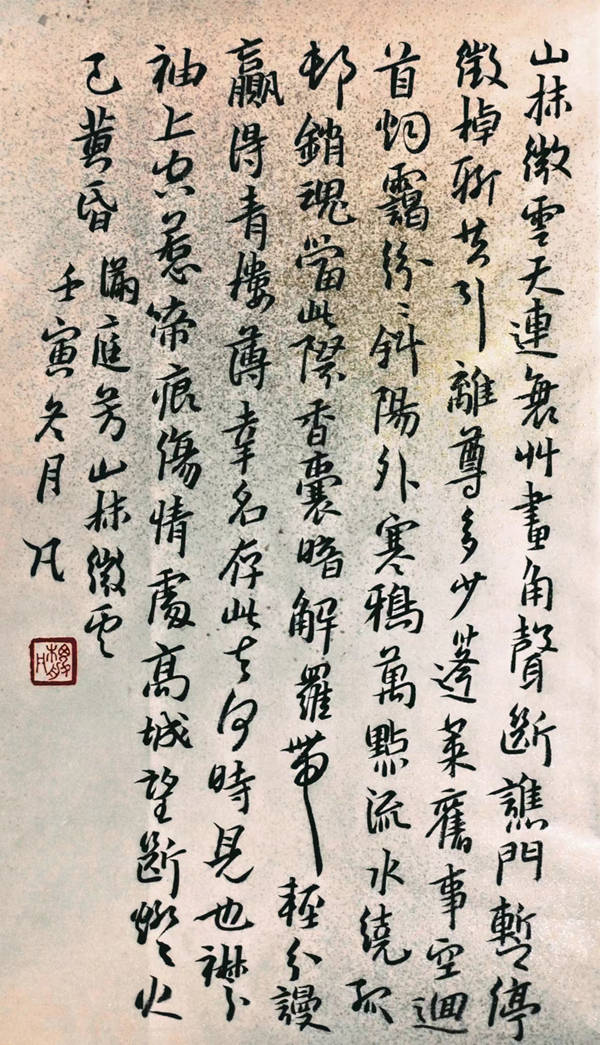 山抹微雲天連衰艸畫角聲斷譙門暫停
徵棹聊共引離尊多少蓬萊舊事空迴
首烟靄紛〻斜陽外寒鴉萬點流水繞孤
邨銷魂當此際香囊暗解羅帶輕分謾
贏得青樓薄幸名存此去何時見也襟
袖上空惹啼痕傷情處高城望斷燈火
已黃昏
滿庭芳山抹微雲
壬寅冬月 凡